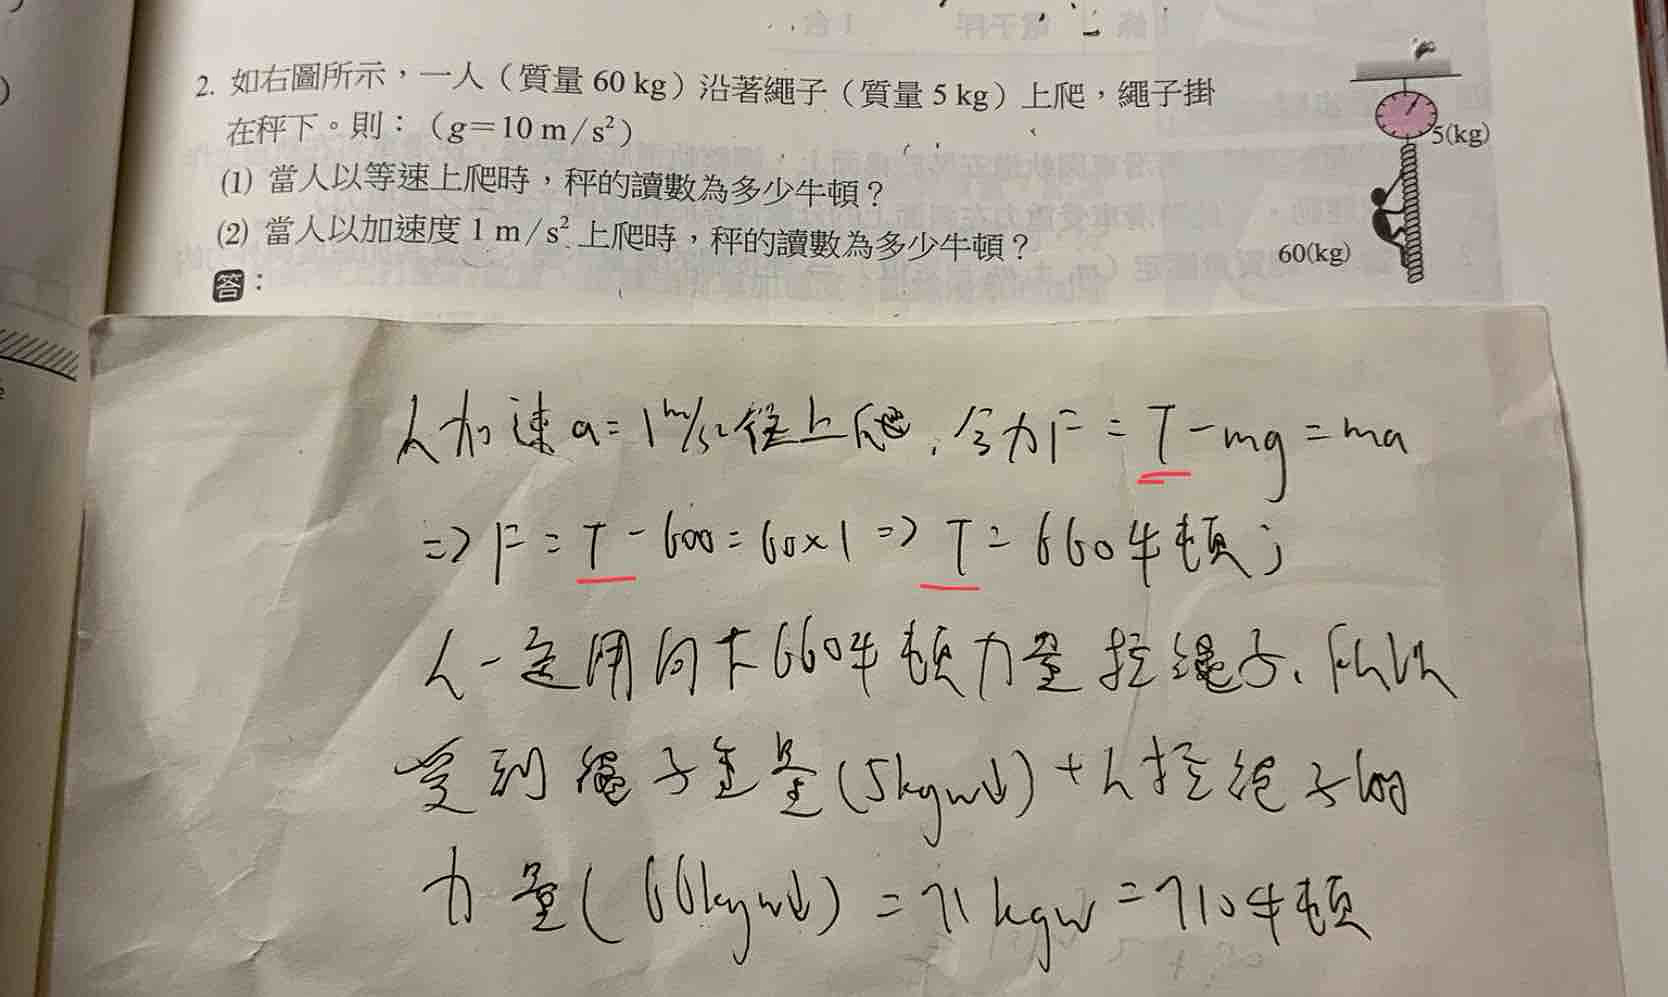 2. 如右圖所示，一人（質量 60 kg）沿著繩子（質量 5 kg）上爬，繩子掛
在秤下。則：（g＝10 m/s²）
(1) 當人以等速上爬時，秤的讀數為多少牛頓？
(2) 當人以加速度 1 m/s² 上爬時，秤的讀數為多少牛頓？
答：
5(kg)
60(kg)
人加速 a=1 m/s² 往上爬，合力F = T - mg = ma
=> F = T - 600 = 60×1 => T = 660牛頓；
人一定用向下660牛頓力量拉繩子、所以
受到繩子重量(5kgw↓) + 人拉繩子的
力量(66kgw↓) = 71kgw = 710牛頓